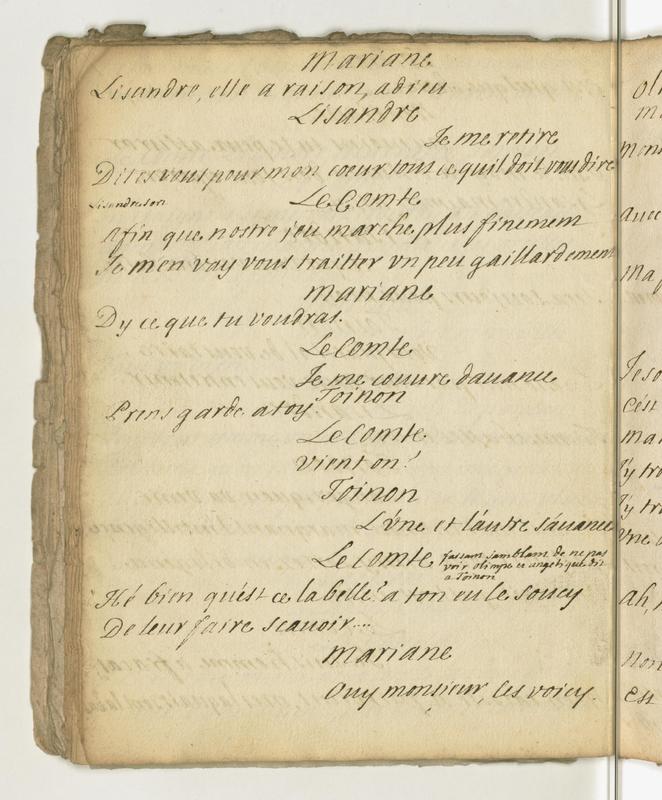 Mariane
Lisandre, elle a raison, adieu
Lisandre
Je me retire
Dites vous pour mon coeur tout ce quil doit vous dire
Lisandre sort
Le Comte
Afin que nostre jeu marche plus finement
Je men vay vous traitter vn peu gaillardement
Mariane
Dy ce que tu voudras.
Le Comte
Je me couure dauance
Toinon
Prens garde a toy
Le Comte
Vient on?
Toinon
L'vne et l'autre s'auance
Le Comte fassant samblant de ne pas
voir olimpe et angelique dit
a Toinon
Hé bien qu'est ce la belle? a ton eu le soucy
De leur faire scauoir....
Mariane
Ouy monsieur, les voicy.
oli
m
mon
auec
ma
Je so
C'est
mai
J'y tro
J'y tro
Vne
ah,
non
est